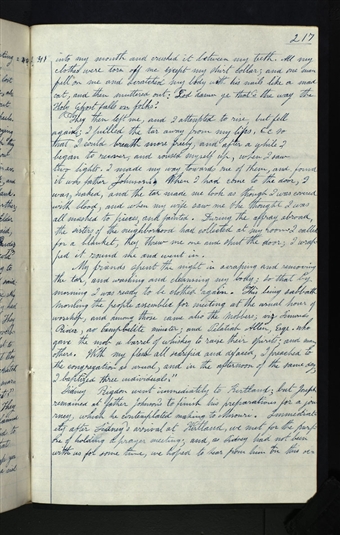 217
into my mouth and crushed it between my teeth. All my
clothes were torn off me except my shirt collar; and one man
fell on me and scratched my body with his nails like a mad
cat, and then muttered out: God damn ye that's the way the
Holy Ghost falls on folks!
They then left me, and I attempted to rise, but fell
again; I pulled the tar away from my lips, &c so
that I could breath more freely, and after a while I
began to recover, and raised myself up, when I saw
two lights. I made my way towards one of them, and found
it was father Johnson's. When I had come to the door, I
was, naked, and the tar made me look as though I was covered
with blood, and when my wife saw me she thought I was
all mashed to pieces, and fainted. During the affray abroad,
the sisters of the neighborhood had collected at my room. I called
for a blanket, they threw me one and shut the door; I wrap-
ped it round me and went in.
My friends spent the night in scraping and removing
the tar, and washing and cleansing my body; so that by
morning I was ready to be clothed again. This being sabbath
morning the people assembled for meeting at the usual hour of
worship, and among those came also the mobbers; viz Simonds
Rider, a Campbellite minister; and Felatiah Allen, Esqr. who
gave the mob a barrel of whiskey to raise their spirits; and many
others. With my flesh all scarified and defaced, I preached to
the congregation as usual, and in the afternoon of the same day
I baptized three individuals.
Sidney Rigdon went immediately to Kirtland, but Joseph
remained at father Johnson's to finish his preparations for a jour-
ney, which he contemplated making to Missouri. Immediat-
ely after Sidney's arrival at Kirtland, we met for the purp-
ose of holding a prayer meeting, and, as Sidney had not been
with us for some time, we hoped to hear from him on this oc-